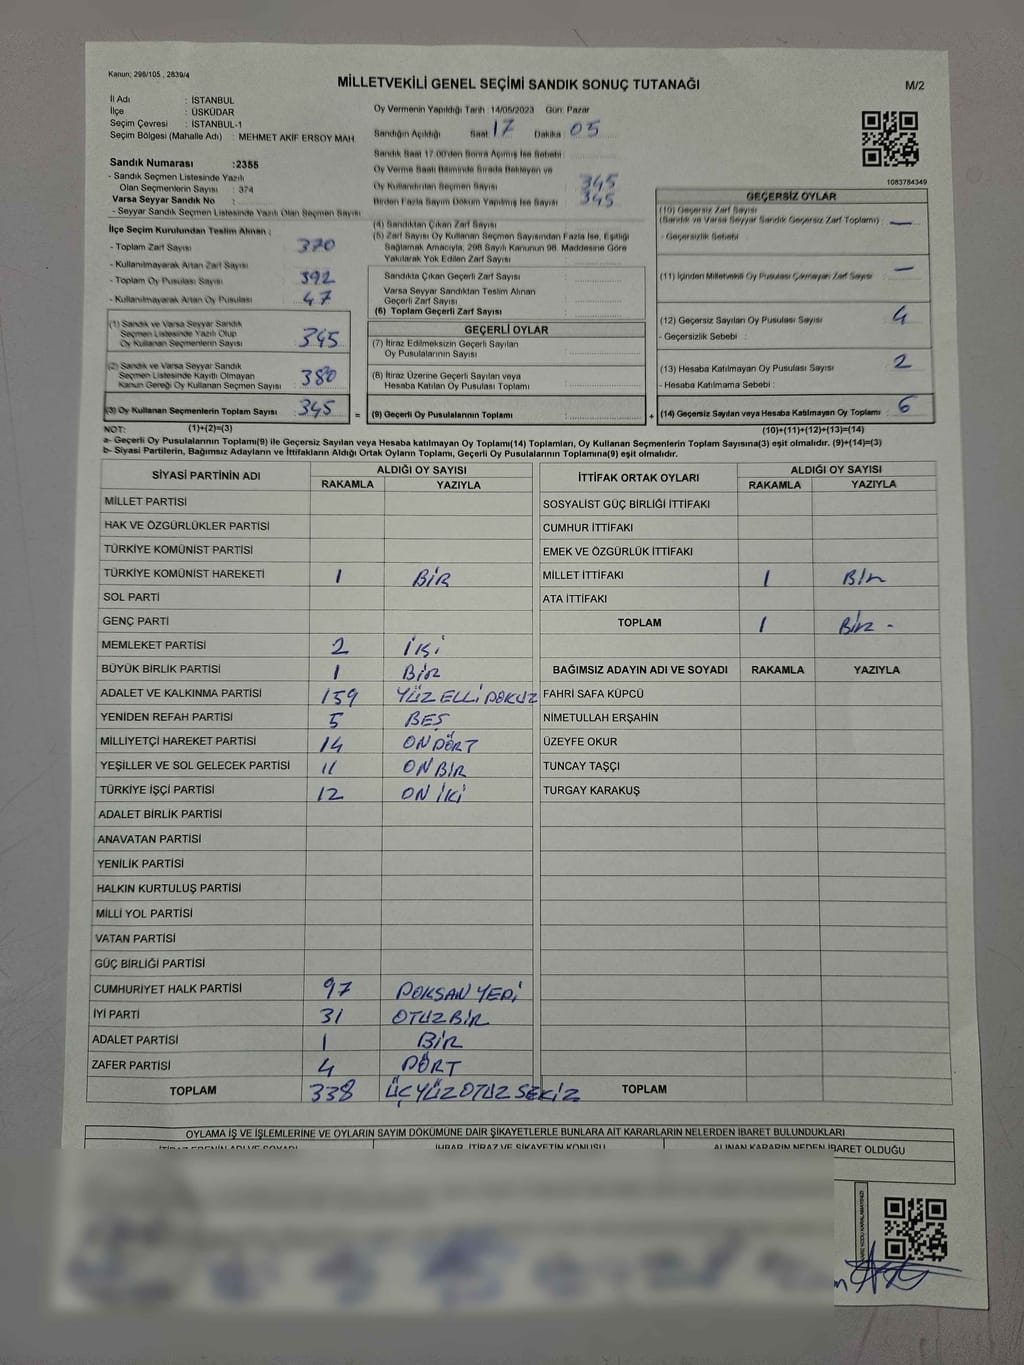 Kanun: 298/105 , 2839/4
MİLLETVEKİLİ GENEL SEÇİMİ SANDIK SONUÇ TUTANAĞI
M/2
İl Adı : İSTANBUL
İlçe : ÜSKÜDAR
Seçim Çevresi : İSTANBUL-1
Seçim Bölgesi (Mahalle Adı) : MEHMET AKİF ERSOY MAH
Oy Vermenin Yapıldığı Tarih :14/05/2023 Gün: Pazar
Sandığın Açıldığı Saat 17 Dakika 05
Sandık Saat 17.00'den Sonra Açılmış İse Sebebi :
Oy Verme Saati Bitiminde Sırada Bekleyen ve
Oy Kullandırılan Seçmen Sayısı : 345
Birden Fazla Sayım Döküm Yapılmış İse Sayısı : 345
1083784349
Sandık Numarası :2355
- Sandık Seçmen Listesinde Yazılı
Olan Seçmenlerin Sayısı : 374
Varsa Seyyar Sandık No :
- Seyyar Sandık Seçmen Listesinde Yazılı Olan Seçmen Sayısı
İlçe Seçim Kurulundan Teslim Alınan ;
- Toplam Zarf Sayısı : 370
- Kullanılmayarak Artan Zarf Sayısı :
- Toplam Oy Pusulası Sayısı : 392
- Kullanılmayarak Artan Oy Pusulası : 47
(1) Sandık ve Varsa Seyyar Sandık
Seçmen Listesinde Yazılı Olup
Oy Kullanan Seçmenlerin Sayısı : 345
(2) Sandık ve Varsa Seyyar Sandık
Seçmen Listesinde Kayıtlı Olmayan
Kanun Gereği Oy Kullanan Seçmen Sayısı : 380
(3) Oy Kullanan Seçmenlerin Toplam Sayısı : 345
(4) Sandıktan Çıkan Zarf Sayısı :
(5) Zarf Sayısı Oy Kullanan Seçmen Sayısından Fazla İse, Eşitliği
Sağlamak Amacıyla, 298 Sayılı Kanunun 98. Maddesine Göre
Yakılarak Yok Edilen Zarf Sayısı :
Sandıkta Çıkan Geçerli Zarf Sayısı :
Varsa Seyyar Sandıktan Teslim Alınan
Geçerli Zarf Sayısı :
(6) Toplam Geçerli Zarf Sayısı :
GEÇERLİ OYLAR
(7) İtiraz Edilmeksizin Geçerli Sayılan
Oy Pusulalarının Sayısı :
(8) İtiraz Üzerine Geçerli Sayılan veya
Hesaba Katılan Oy Pusulası Toplamı :
= (9) Geçerli Oy Pusulalarının Toplamı :
GEÇERSİZ OYLAR
(10) Geçersiz Zarf Sayısı
(Sandık ve Varsa Seyyar Sandık Geçersiz Zarf Toplamı) : —
- Geçersizlik Sebebi :
(11) İçinden Milletvekili Oy Pusulası Çıkmayan Zarf Sayısı : —
(12) Geçersiz Sayılan Oy Pusulası Sayısı : 4
- Geçersizlik Sebebi :
(13) Hesaba Katılmayan Oy Pusulası Sayısı : 2
- Hesaba Katılmama Sebebi :
+ (14) Geçersiz Sayılan veya Hesaba Katılmayan Oy Toplamı : 6
NOT: (1)+(2)=(3)
(10)+(11)+(12)+(13)=(14)
a- Geçerli Oy Pusulalarının Toplamı(9) ile Geçersiz Sayılan veya Hesaba katılmayan Oy Toplamı(14) Toplamları, Oy Kullanan Seçmenlerin Toplam Sayısına(3) eşit olmalıdır. (9)+(14)=(3)
b- Siyasi Partilerin, Bağımsız Adayların ve İttifakların Aldığı Ortak Oyların Toplamı, Geçerli Oy Pusulalarının Toplamına(9) eşit olmalıdır.
SİYASİ PARTİNİN ADI ALDIĞI OY SAYISI
RAKAMLA YAZIYLA
MİLLET PARTİSİ
HAK VE ÖZGÜRLÜKLER PARTİSİ
TÜRKİYE KOMÜNİST PARTİSİ
TÜRKİYE KOMÜNİST HAREKETİ 1 BİR
SOL PARTİ
GENÇ PARTİ
MEMLEKET PARTİSİ 2 İKİ
BÜYÜK BİRLİK PARTİSİ 1 BİR
ADALET VE KALKINMA PARTİSİ 159 YÜZ ELLİ DOKUZ
YENİDEN REFAH PARTİSİ 5 BEŞ
MİLLİYETÇİ HAREKET PARTİSİ 14 ON DÖRT
YEŞİLLER VE SOL GELECEK PARTİSİ 11 ON BİR
TÜRKİYE İŞÇİ PARTİSİ 12 ON İKİ
ADALET BİRLİK PARTİSİ
ANAVATAN PARTİSİ
YENİLİK PARTİSİ
HALKIN KURTULUŞ PARTİSİ
MİLLİ YOL PARTİSİ
VATAN PARTİSİ
GÜÇ BİRLİĞİ PARTİSİ
CUMHURİYET HALK PARTİSİ 97 DOKSAN YEDİ
İYİ PARTİ 31 OTUZ BİR
ADALET PARTİSİ 1 BİR
ZAFER PARTİSİ 4 DÖRT
TOPLAM 338 ÜÇ YÜZ OTUZ SEKİZ
İTTİFAK ORTAK OYLARI ALDIĞI OY SAYISI
RAKAMLA YAZIYLA
SOSYALİST GÜÇ BİRLİĞİ İTTİFAKI
CUMHUR İTTİFAKI
EMEK VE ÖZGÜRLÜK İTTİFAKI
MİLLET İTTİFAKI 1 BİR
ATA İTTİFAKI
TOPLAM 1 BİR -
BAĞIMSIZ ADAYIN ADI VE SOYADI RAKAMLA YAZIYLA
FAHRİ SAFA KÜPCÜ
NİMETULLAH ERŞAHİN
ÜZEYFE OKUR
TUNCAY TAŞÇI
TURGAY KARAKUŞ
TOPLAM
OYLAMA İŞ VE İŞLEMLERİNE VE OYLARIN SAYIM DÖKÜMÜNE DAİR ŞİKAYETLERLE BUNLARA AİT KARARLARIN NELERDEN İBARET BULUNDUKLARI
İTİRAZ EDENİN ADI VE SOYADI İHBAR, İTİRAZ VE ŞİKAYETİN KONUSU ALINAN KARARIN NEDEN İBARET OLDUĞU